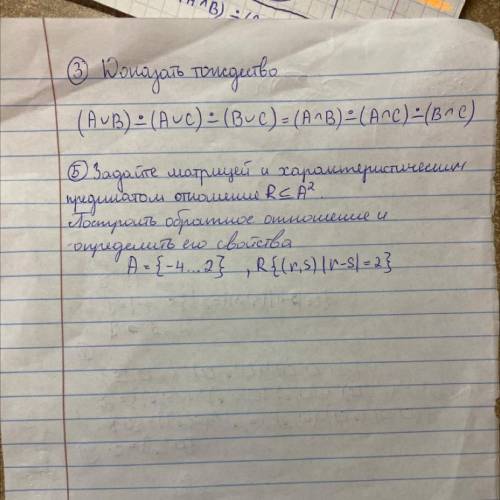 (A∧B) ∸ (
③ Доказать тождество
(A∪B)∸(A∪C)∸(B∪C)=(A∩B)∸(A∩C)∸(B∩C)
⑤ Задайте матрицей и характеристическим
предикатом отношение R⊆A².
Построить обратное отношение и
определить его свойства
A={-4...2}, R{(r,s)|r-s|=2}